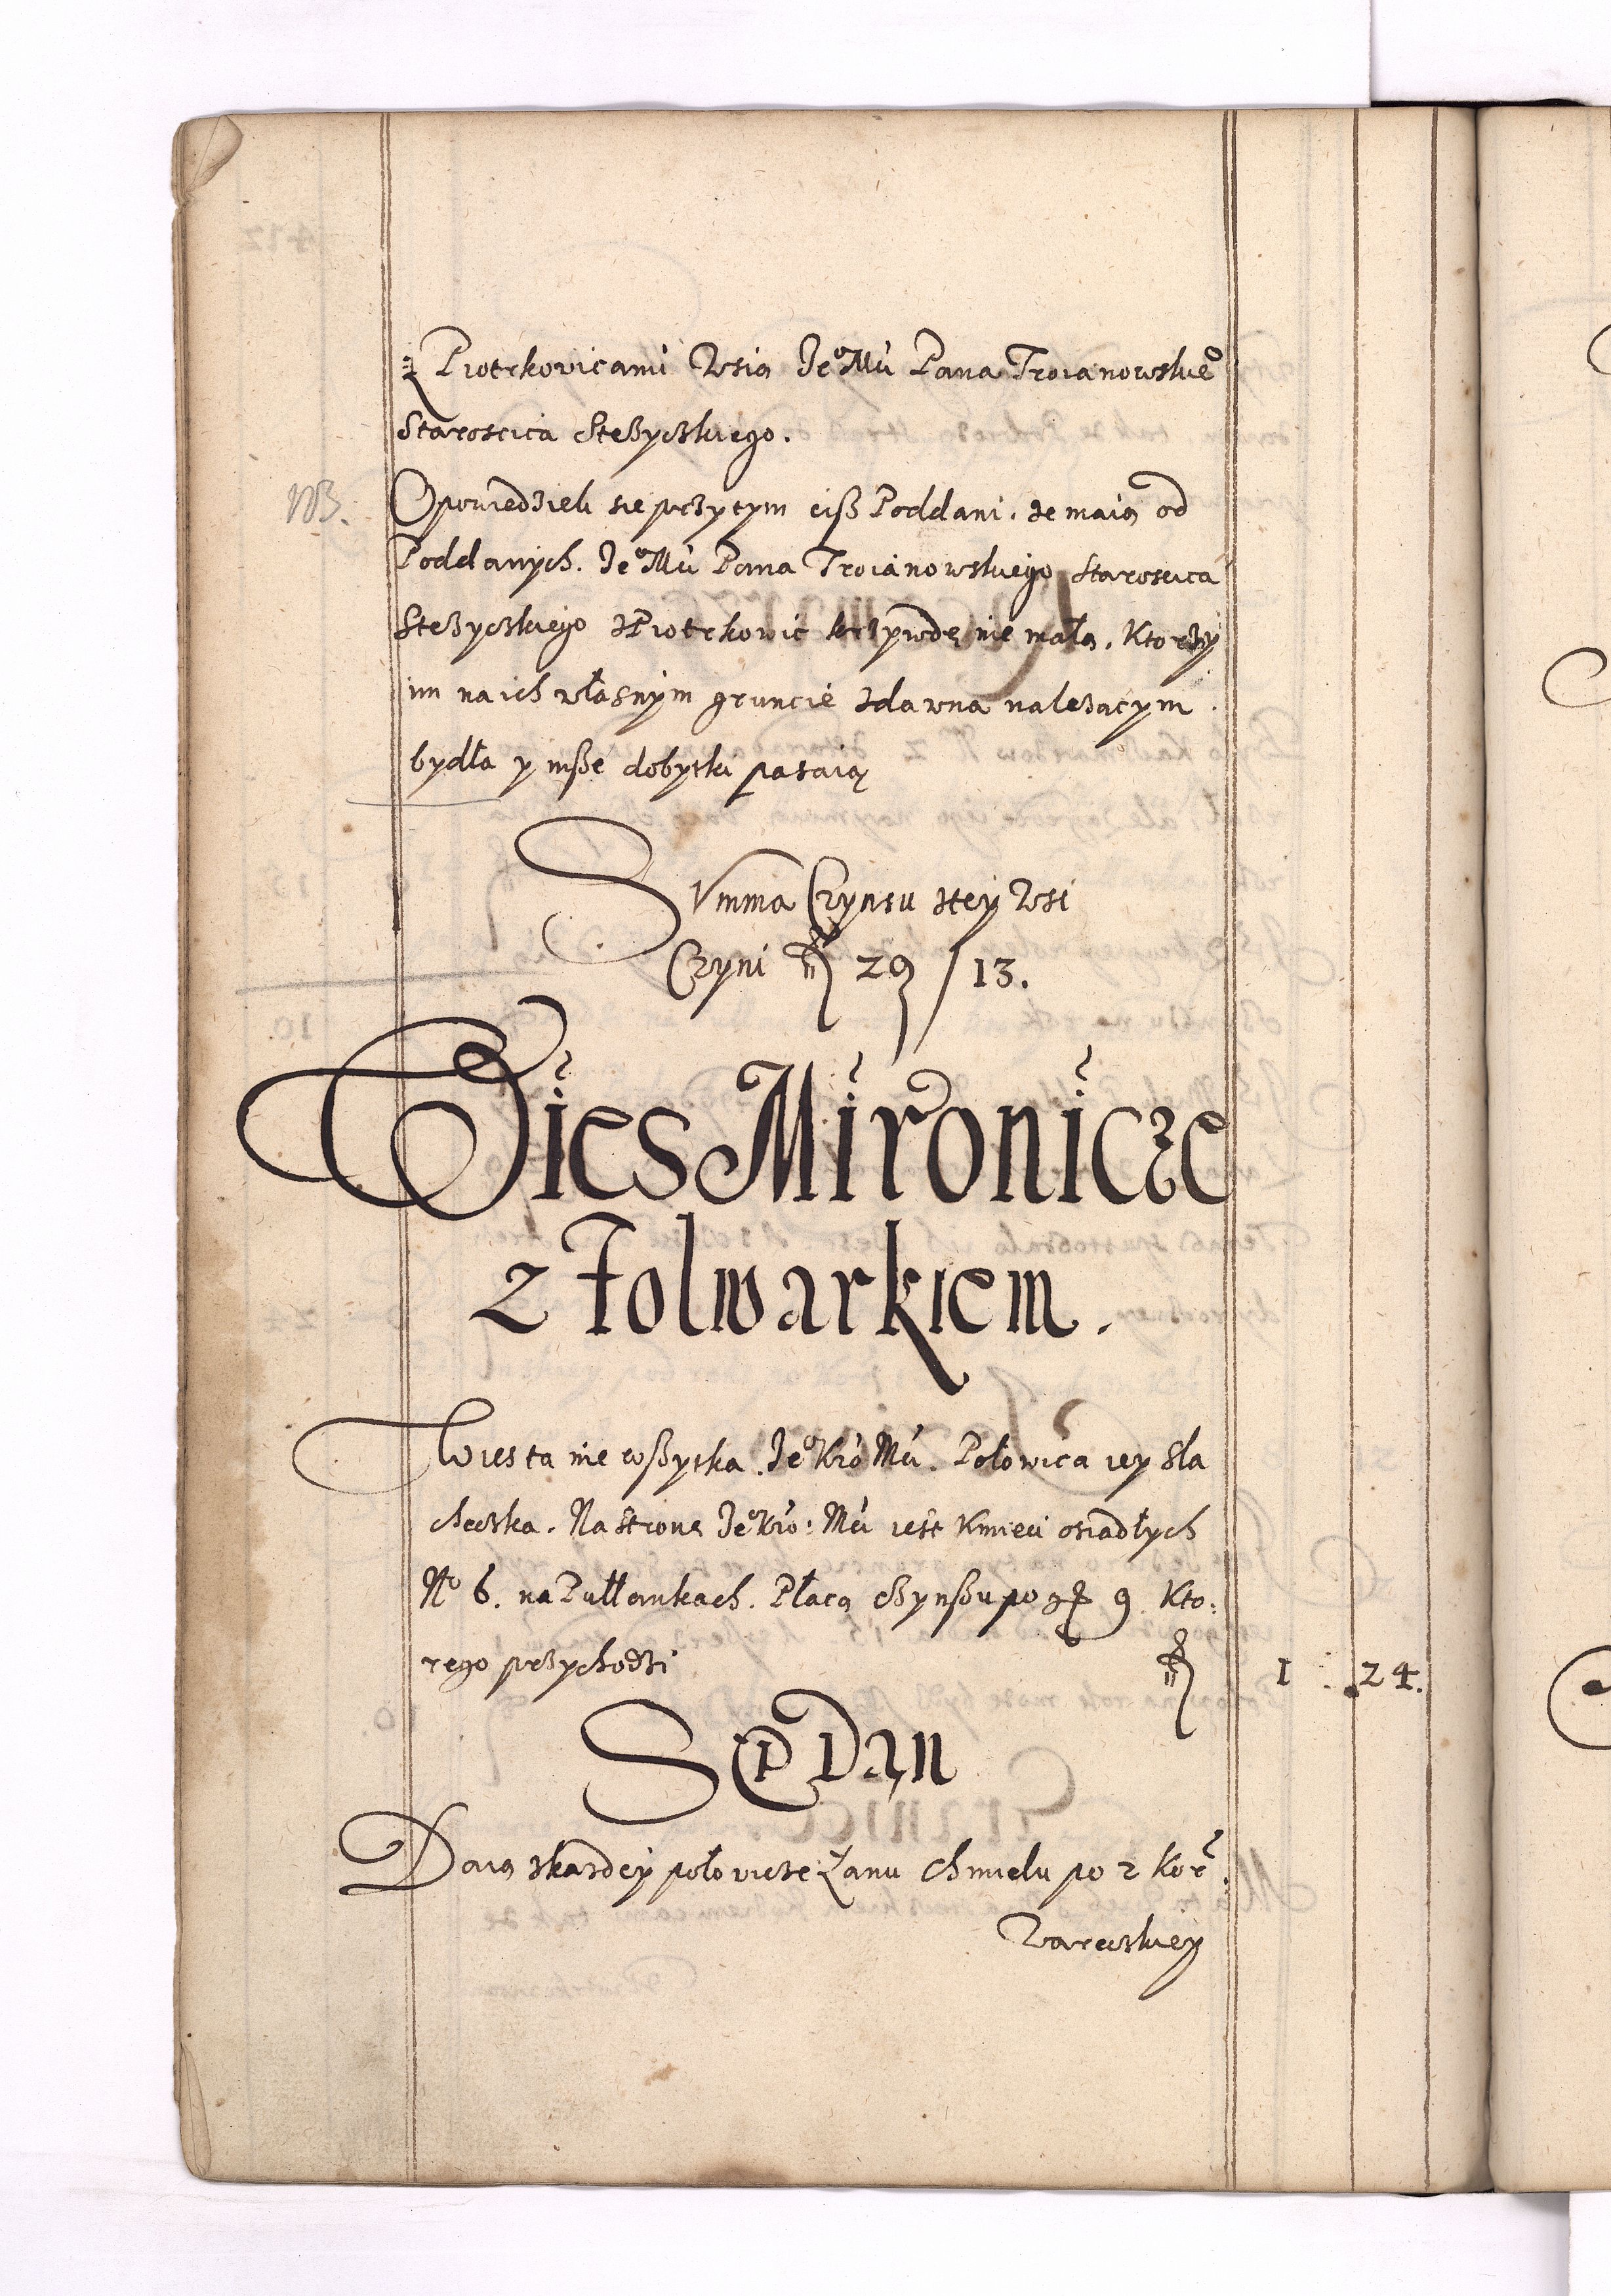 z Piotrkowicami Wsią Jeº Mći Pana Troianowskieº
Staroscica Stezyczkiego.
NB.
Opowiedzieli sie przytym ciß Poddani. ze maią od
Poddanych. Jeº Mći Pana Troianowskiego Staroscica
Stezyczkiego z Piotrkowic krzywdę nie małą. Ktorzy
im na ich własnym gruncie zdawna nalezacym
bydła y inße dobytki pasaią
Summa Czynsu ztey Wsi
Czyni fl 29 / 13.
Wies Mironicze
z Folwarkiem.
Wies ta nie wßytka. Jeº Kró Mći. Połowica iey Sla
checka. Na stronę Jeº Kró: Mći iest Kmieci osiadłych
Nº 6. na Pułłankach. Płacą cżynßu po gr 9. Kto:
rego przychodzi fl 1 . 24.
Sep Dan
Daią zkazdey połowicze Łanu Chmielu po 2 Kor.
Wareckiey